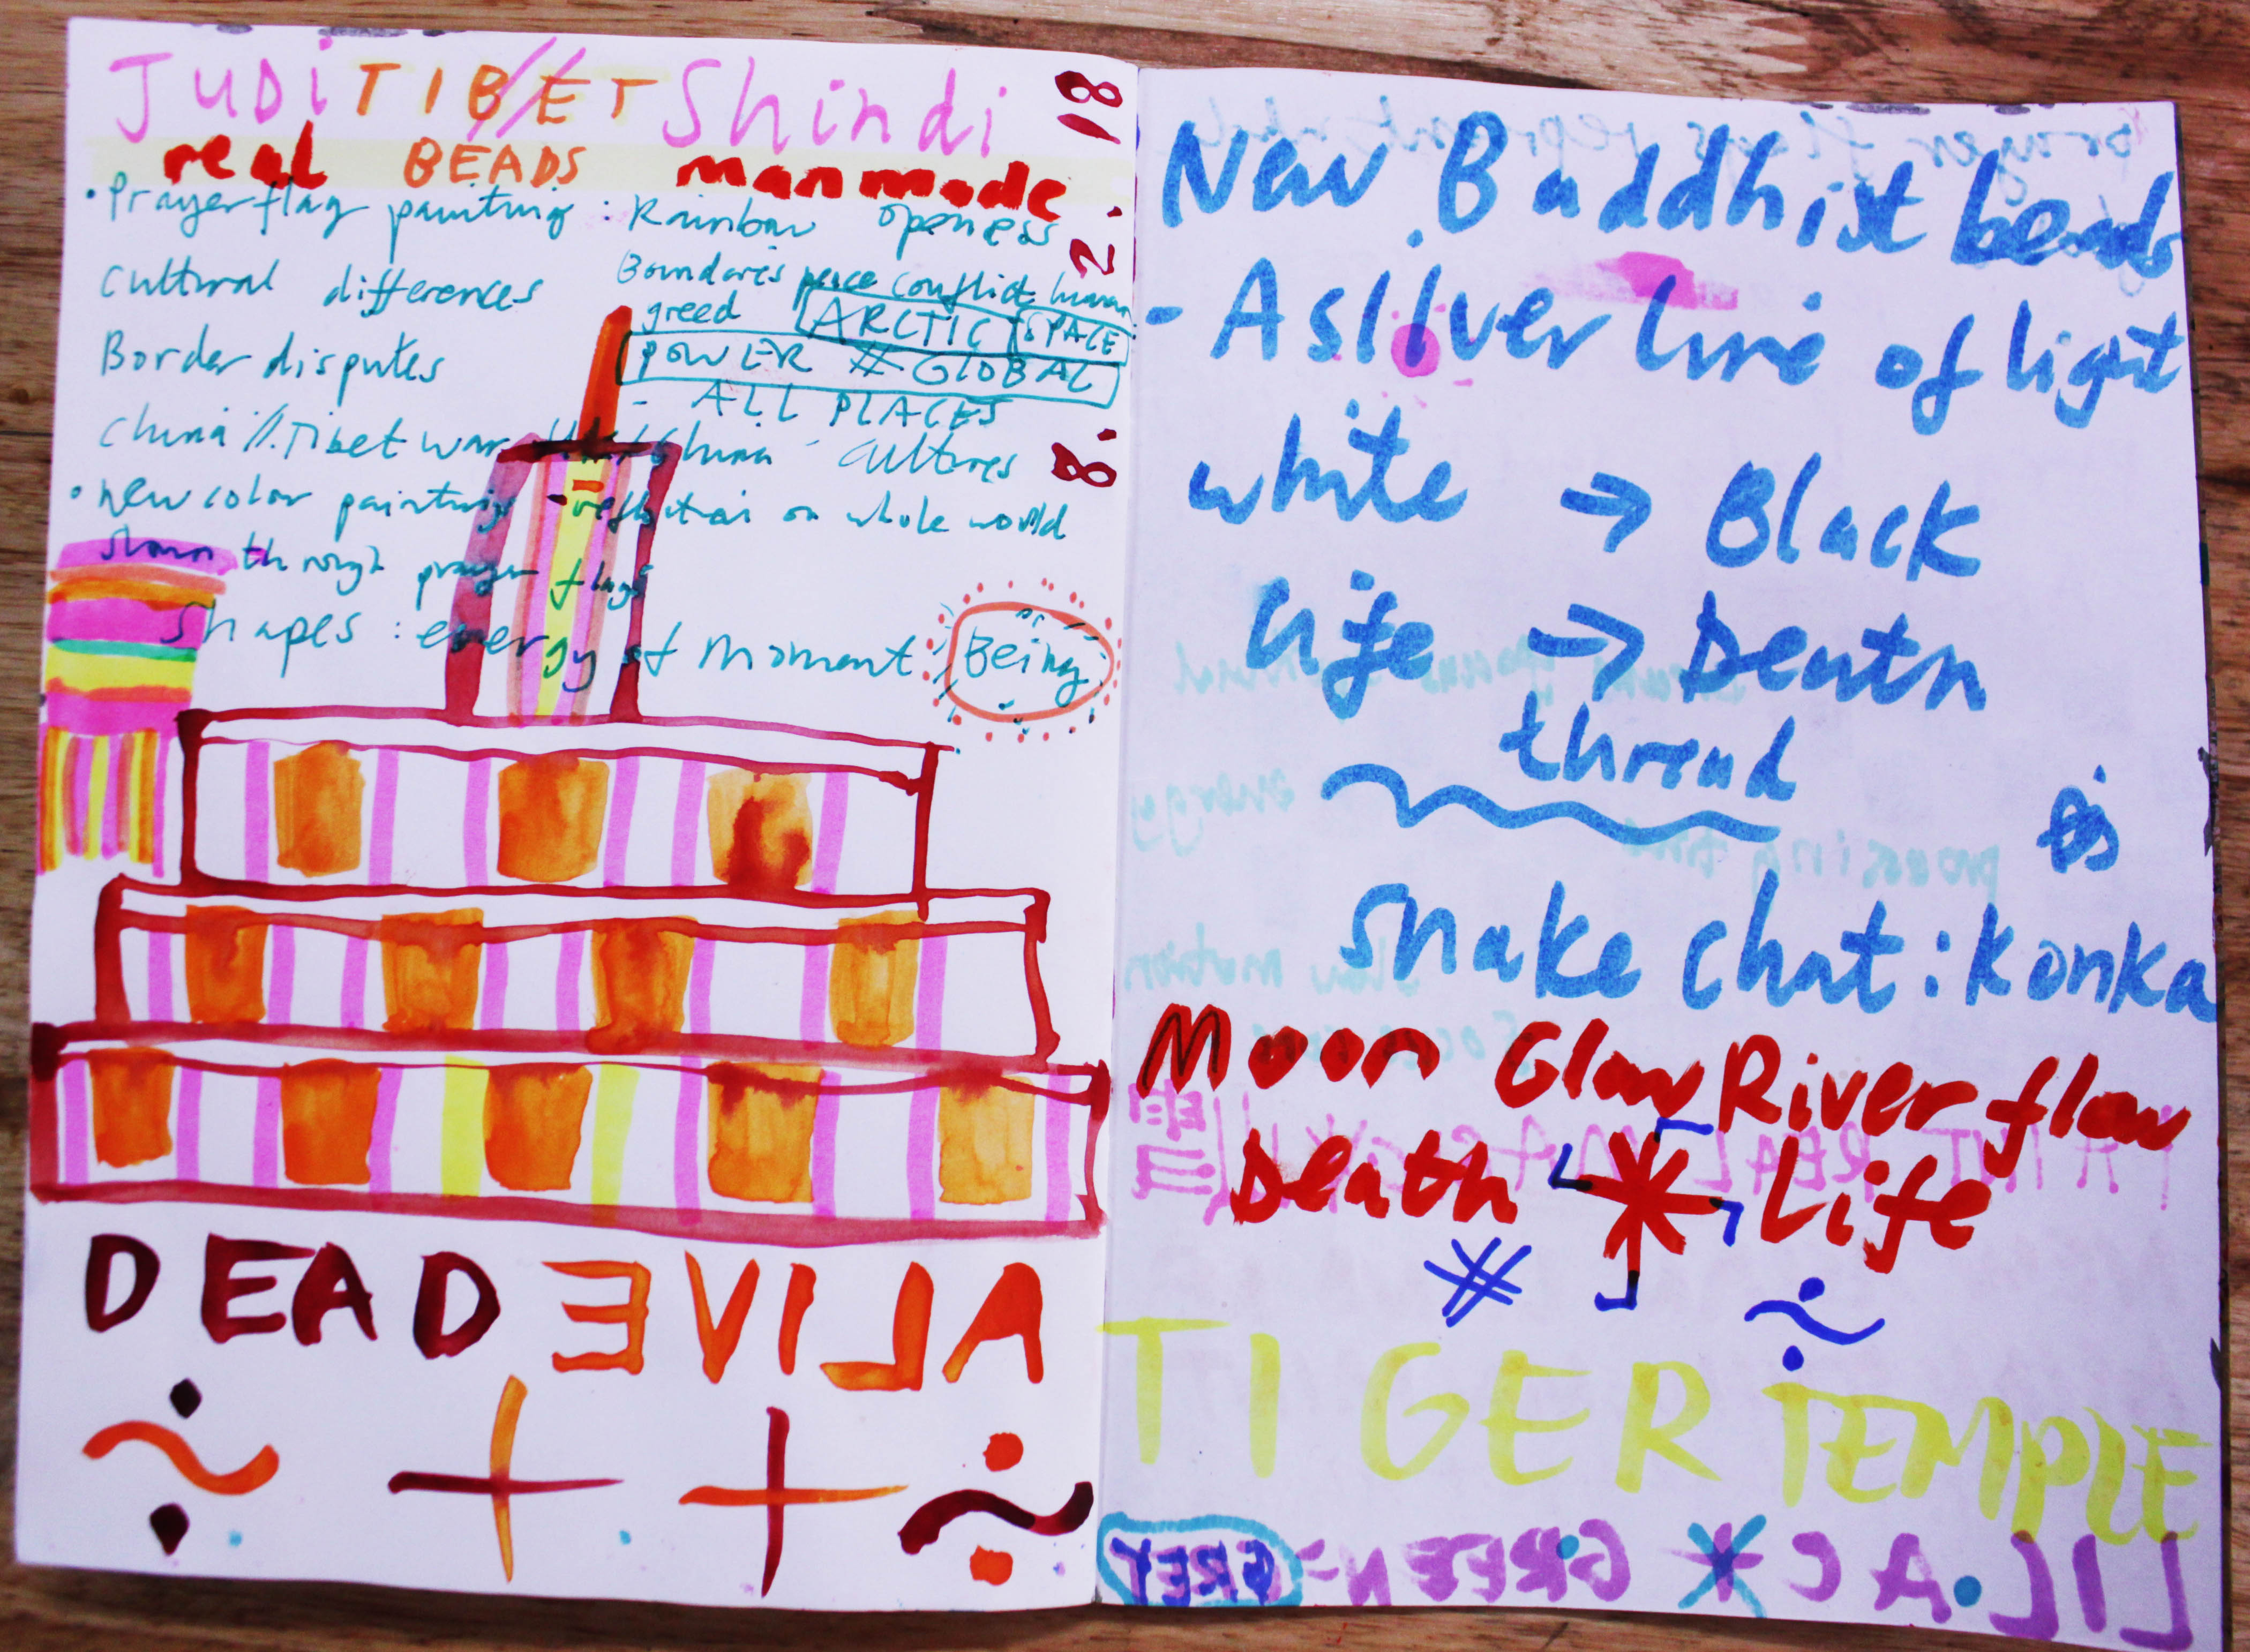 Judi TIBET Shindi
real BEADS manmade
18
2.
8.
• Prayer flag painting : Rainbow openess
Cultural differences
Boundares peace conflict human
greed ARCTIC SPACE
Border disputes
POWER # GLOBAL
- ALL PLACES
China // Tibet war China cultures
• New color painting - reflection on whole world
shown through prayer flags
Shapes : energy of Moment Being
DEAD EVILA
New Buddhist beads
- A silver line of light
white → Black
Life → Death
thread
is
snake chat : Konka
Moon Glow River flow
Death * Life
#
TIGER TEMPLE
GREY = GREEN * LILAC